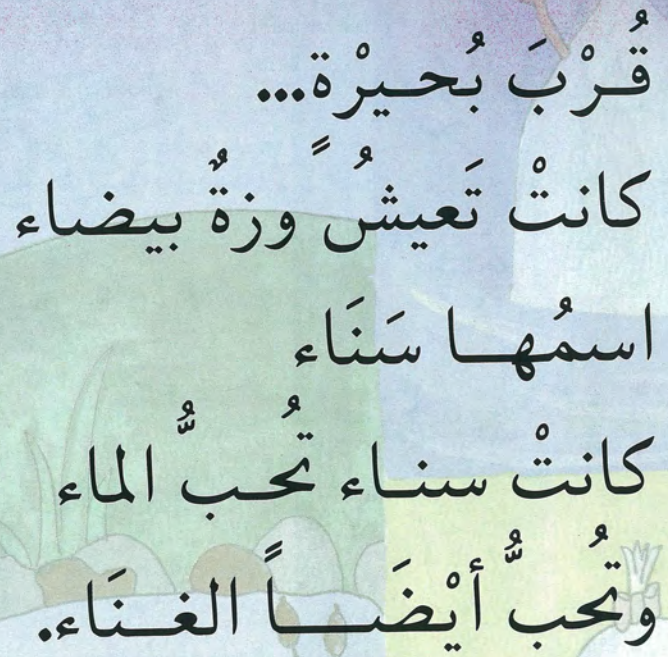 قُرْبَ بُحـيرْة...
كانتْ تَعيشُ وزةٌ بيضاء
اسمُهـا سَنَاء
كانتْ سنـاء تُحـبُّ الماء
وتُحبُّ أيْضَـــاً الغـنَاء.